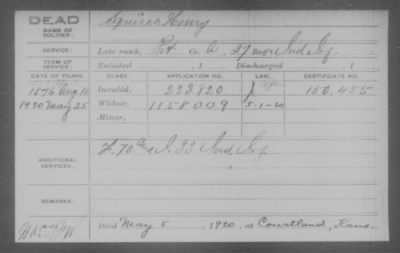 DEAD
NAME OF SOLDIER: Squires Henry
SERVICE: Late rank, Pvt Co. A, 27 Ind Inf.
TERM OF SERVICE: Enlisted , 1 Discharged , 1
DATE OF FILING. CLASS. APPLICATION NO. LAW. CERTIFICATE NO.
1876 Aug 16 Invalid, 223,820 150,455
1920 May 25 Widow, 1158009 5-1-20
Minor,
ADDITIONAL SERVICES: 70 Ind 33 Ind Inf
REMARKS:
Died May 5, 1920, at Courtland, Kans